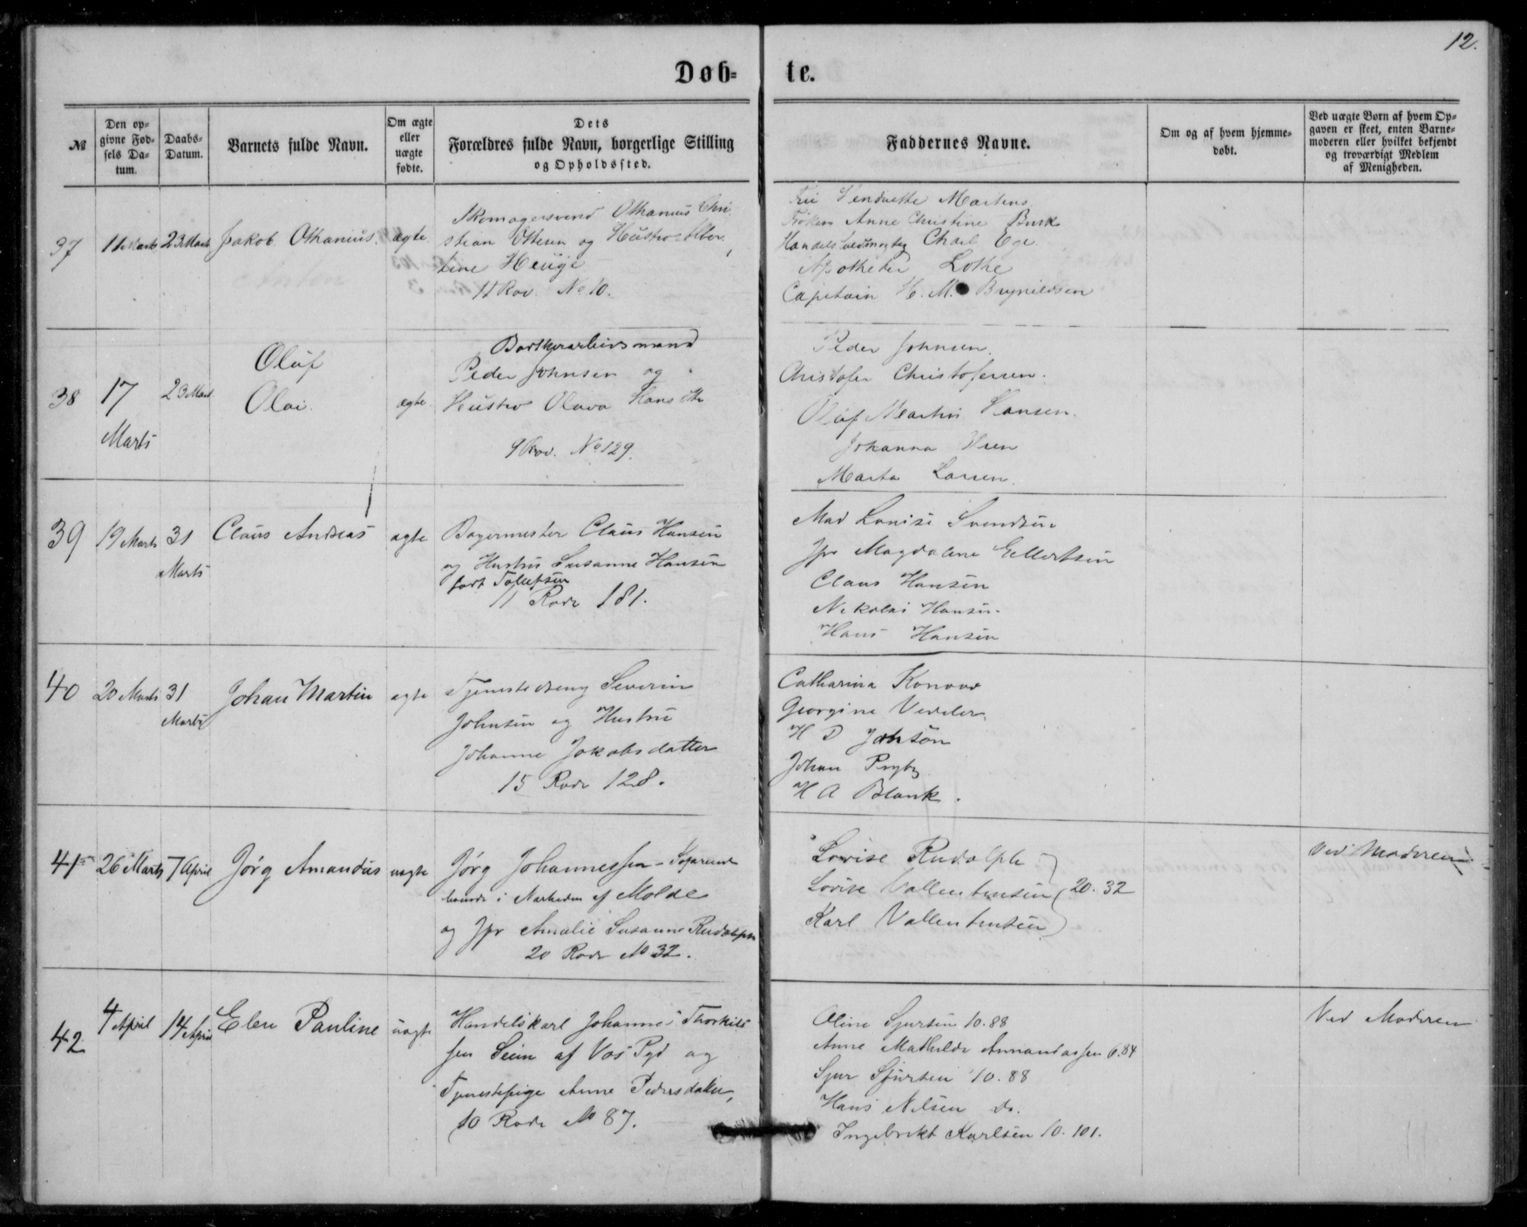 12.
Døb-
te.
№
Den op-
givne Fød-
sels Da-
tum.
Daabs-
Datum.
Barnets fulde Navn.
Om ægte
eller
uægte
fødte.
Dets
Forældres fulde Navn, borgerlige Stilling
og Opholdssted.
Faddernes Navne.
Om og af hvem hjemme-
døbt.
Ved uægte Børn af hvem Op-
gaven er skeet, enten Barne-
moderen eller hvilket bekjendt
og troværdigt Medlem
af Menigheden.
37
11 Marts
23 Marts
Jakob Othanius.
ægte
Skomagersvend Othanius Chri
stian Ottesen og Hustro
tine
11 Rov. No 10.
Martens
Frøken Anne Christine Busk
Charl Ege
Apotheker Lothe
Capitain H. M. Brynildsen
38
17
Marts
23 Marts
Oluf
Olai.
ægte
Peder Johnsen og
Hustro Olava Hans Dtr
9 Rov. No 129.
Peder Johnsen.
Christofer Christofersen.
Oluf Martin Hansen.
Johanna
Marta Larsen.
39
19 Marts
31
Marts
Claus Andreas
ægte
Bagermester Claus Hansen
og Hustru Susanne Hansen
født Tollefsen
11 Rode 181.
Mad Lovise Svendsen
Jfr Magdalene Ellertsen
Claus Hansen
Nikolai Hansen.
Hans Hansen
40
20 Marts
31
Marts
Johan Martin
ægte
Tjenestedreng Severin
Johnsen og Hustru
Johanne Jakobsdatter
15 Rode 128.
Catharina Konow
Georgine Vedeler.
H D Jansøn
Johan Rygby
H A Blank.
41
26 Marts
7 April
Jørg Amandus
uægte
Jørg Johannessen
i Nærheden af Molde
og Jfr Amalie Susanne Rudolph
20 Rode No 32.
Lovise Rudolph
Lovise Vallentinsen 20. 32
Karl Vallentinsen
Ved Moderen
42
4 April
14 April
Elen Pauline
uægte
Handelskarl Johannes Thorkild
sen Seim af Vos Pgd og
Tjenestepige Anne Pedersdatter,
10 Rode No 87.
Oline Sjursen 10. 88
Anne Mathilde Annaniassen 6. 84
Sjur Sjursen 10. 88
Hans Nilsen do.
Ingebrikt Karlsen 10. 101.
Ved Moderen